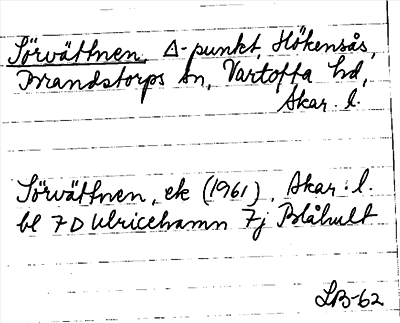 Sörvättnen, Δ-punkt, Hökensås,
Brandstorps sn, Vartofta hd,
Skar. l.
Sörvättnen, ek (1961), Skar. l.
bl 7D Ulricehamn 7j Blåhult
LB-62